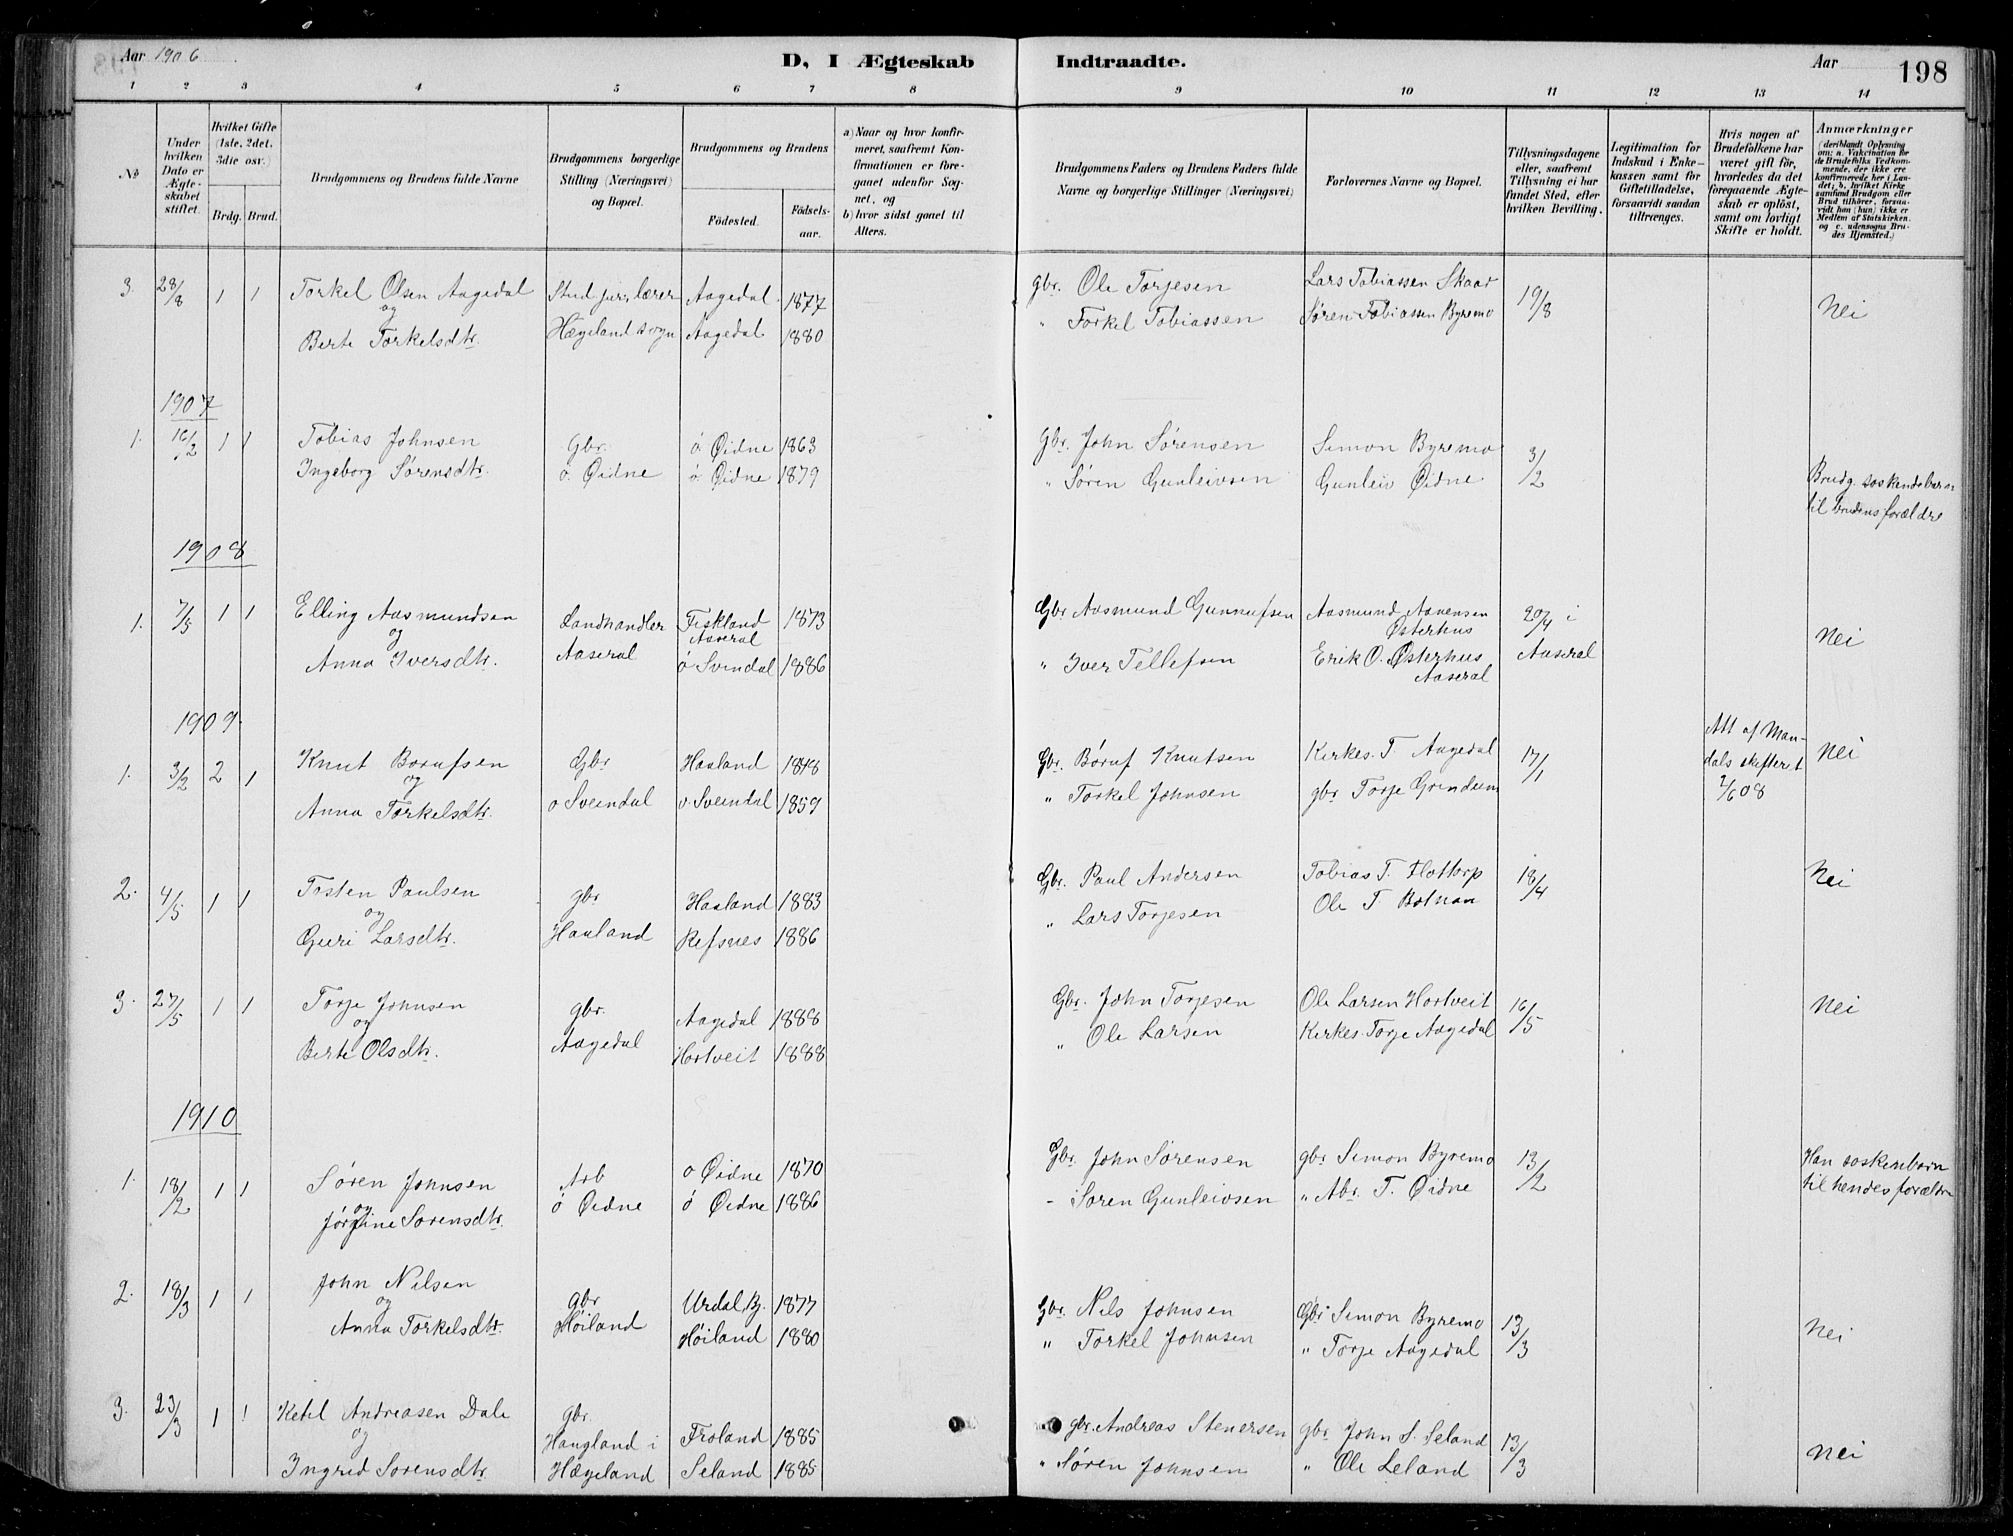 Aar 1906
D, I Ægteskab Indtraadte.
Aar
198
1 2 3 4 5 6 7 8 9 10 11 12 13 14
No
Under hvilken Dato er Ægteskabet stiftet.
Hvilket Gifte (1ste, 2det, 3die osv.)
Brdg. Brud.
Brudgommens og Brudens fulde Navne
Brudgommens borgerlige Stilling (Næringsvei) og Bopæl.
Brudgommens og Brudens
Fødested. Fødselsaar.
a) Naar og hvor konfirmeret, saafremt Konfirmationen er foregaaet udenfor Sognet, og
b) hvor sidst gaaet til Alters.
Brudgommens Faders og Brudens Faders fulde Navne og borgerlige Stillinger (Næringsvei)
Forlovernes Navne og Bopæl.
Tillysningsdagene eller, saafremt Tillysning ei har fundet Sted, efter hvilken Bevilling.
Legitimation for Indskud i Enkekassen samt for Giftetilladelse, forsaavidt saadan tiltrænges.
Hvis nogen af Brudefolkene har været gift før, hvorledes da det foregaaende Ægteskab er opløst, samt om lovligt Skifte er holdt.
Anmærkninger (deriblandt Oplysning om: a. Vakcination for de Brudefolks Vedkommende, der ikke ere konfirmerede her i Landet; b. hvilket Kirkesamfund Brudgom eller Brud tilhører, forsaavidt han (hun) ikke er Medlem af Statskirken, og c. udensogns Brudes Hjemsted.)
3. 28/8 1 1 Torkel Olsen Aagedal Stud jur, lærer Aagedal 1877 gbr. Ole Torjesen Lars Tobiassen Skaar 19/8 Nei
og
Berte Torkelsdtr. Hægeland sogn Aagedal 1880 " Torkel Tobiassen Søren Tobiassen Byremo
1907
1. 16/2 1 1 Tobias Johnsen Gbr. ö. Øidne 1863 Gbr. John Sørensen Simon Byremo 3/2
Ingeborg Sørensdtr. ö. Øidne ö. Øidne 1879 " Søren Gunleivsen Gunleiv Øidne Brudg. søskendebarn
til brudens forældre
1908
1. 7/5 1 1 Elling Aasmundsen Landhandler Fiskland 1873 Gbr Aasmund Gunnufsen Aasmund Aanensen 20/4 i
og Aaseral Østerhus Nei
Anna Iversdtr. Aaseral ö Svindal 1886 " Iver Tellefsen Erik O. Østerhus Aaseral
Aaseral
1909
1. 3/2 2 1 Knut Borufsen Gbr Haaland 1848 Gbr. Børuf Knutsen Kirkes. T. Aagedal 17/1 Att af Mandals skifteret 2/6 08 Nei
og
Anna Torkelsdtr. o Sveindal v. Sveindal 1859 " Torkel Johnsen gbr Torje Grindum
2. 4/5 1 1 Tosten Paulsen gbr Haaland 1883 Gbr. Paul Andersen Tobias T. Flottorp 18/4 Nei
og
Guri Larsdtr. Haaland Refsnes 1886 " Lars Torjesen Ole T Botnan
3. 27/5 1 1 Torje Johnsen gbr. Aagedal 1888 Gbr. John Torjesen Ole Larsen Hortveit 16/5 Nei
og
Berte Olsdtr. Aagedal Hortveit 1888 " Ole Larsen Kirkes. Torje Aagedal
1910
1. 18/2 1 1 Søren Johnsen Arb o Øidne 1870 Gbr. John Sørensen gbr Simon Byremo 13/2 Han søskenbarn
og
Jørgine Sorensdtr. ö Øidne ö Øidne 1886 - Søren Gunleivsen " Abr. T. Øidne til hendes forældre
2. 18/3 1 1 John Nilsen gbr Urdal, Bj. 1877 Gbr. Nils Johnsen Gbr Simon Byremo 13/3 Nei
og
Anna Torkelsdtr. Høiland Høiland 1880 " Torkel Johnsen " Torje Aagedal
3. 23/3 1 1 Ketil Andreasen Dale gbr. Froland 1885 gbr. Andreas Stenersen gbr John S. Seland 13/3 Nei
og Haugland i
Ingrid Sorensdtr. Hægeland Seland 1885 " Søren Johnsen " Ole Leland